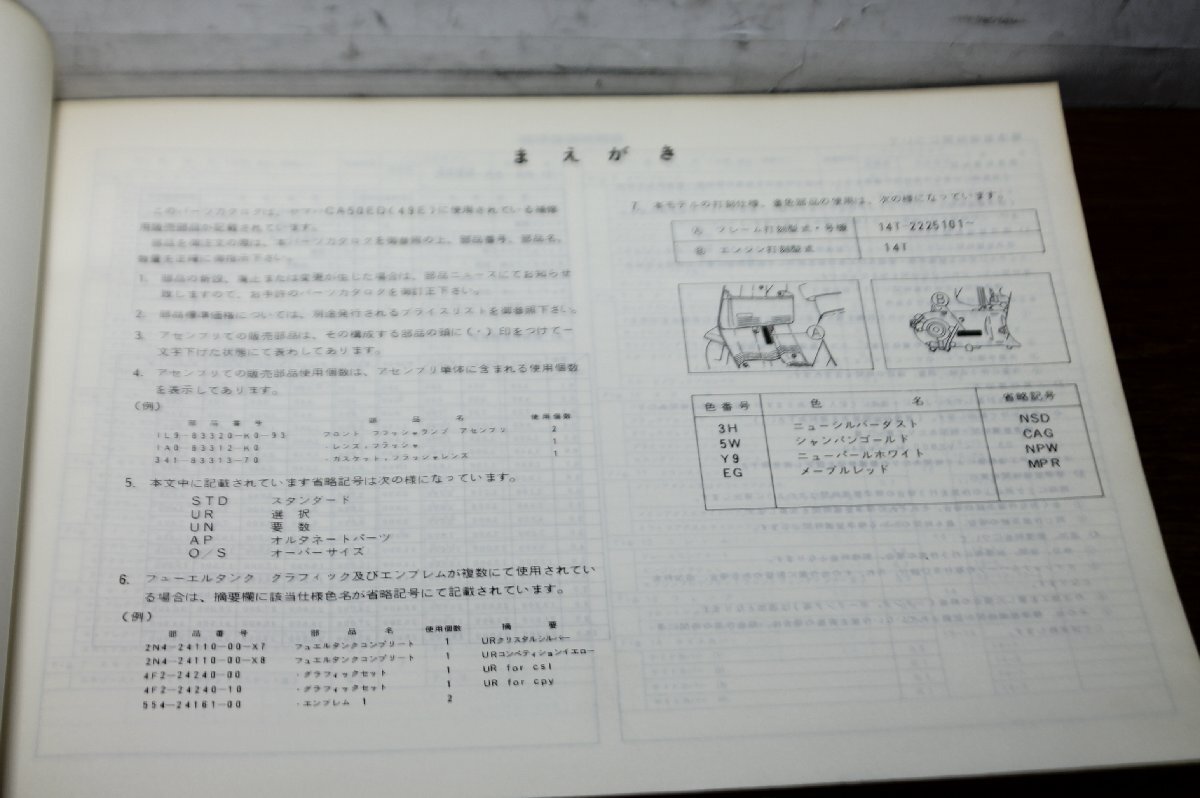 まえがき
このパーツカタログは、ヤマハCA50ED(49E)に使用されている補修
用販売部品が記載されています。
部品を御注文の際は、本パーツカタログを御参照の上、部品番号、部品名、
数量を正確に御指示下さい。
1. 部品の新設、廃止または変更が生じた場合は、部品ニュースにてお知らせ
致しますので、お手許のパーツカタログを御訂正下さい。
2. 部品標準価格については、別途発行されるプライスリストを御参照下さい。
3. アセンブリでの販売部品は、その構成する部品の頭に(・)印をつけて一
文字下げた状態にて表わしてあります。
4. アセンブリでの販売部品使用個数は、アセンブリ単体に含まれる使用個数
を表示してあります。
(例)
部品番号 部品名 使用個数
1L9-83320-K0-93 フロント フラッシャランプ アセンブリ 2
1A0-83312-K0 ・レンズ,フラッシャ 1
341-83313-70 ・ガスケット,フラッシャレンズ 1
5. 本文中に記載されています省略記号は次の様になっています。
STD スタンダード
UR 選択
UN 要数
AP オルタネートパーツ
O/S オーバーサイズ
6. フューエルタンク グラフィック及びエンブレムが複数にて使用されてい
る場合は、摘要欄に該当仕様色名が省略記号にて記載されています。
(例)
部品番号 部品名 使用個数 摘要
2N4-24110-00-X7 フュエルタンクコンプリート 1 URクリスタルシルバー
2N4-24110-00-X8 フュエルタンクコンプリート 1 URコンペティションイエロー
4F2-24240-00 ・グラフィックセット 1 UR for csl
4F2-24240-10 ・グラフィックセット 1 UR for cpy
554-24161-00 ・エンブレム 1 2
7. 本モデルの打刻仕様、量色部品の使用は、次の様になっています。
Ⓐ フレーム打刻型式・号機 14T-2225101~
Ⓑ エンジン打刻型式 14T
A
B
色番号 色名 省略記号
3H ニューシルバーダスト NSD
5W シャンパンゴールド CAG
Y9 ニューパールホワイト NPW
EG メープルレッド MPR